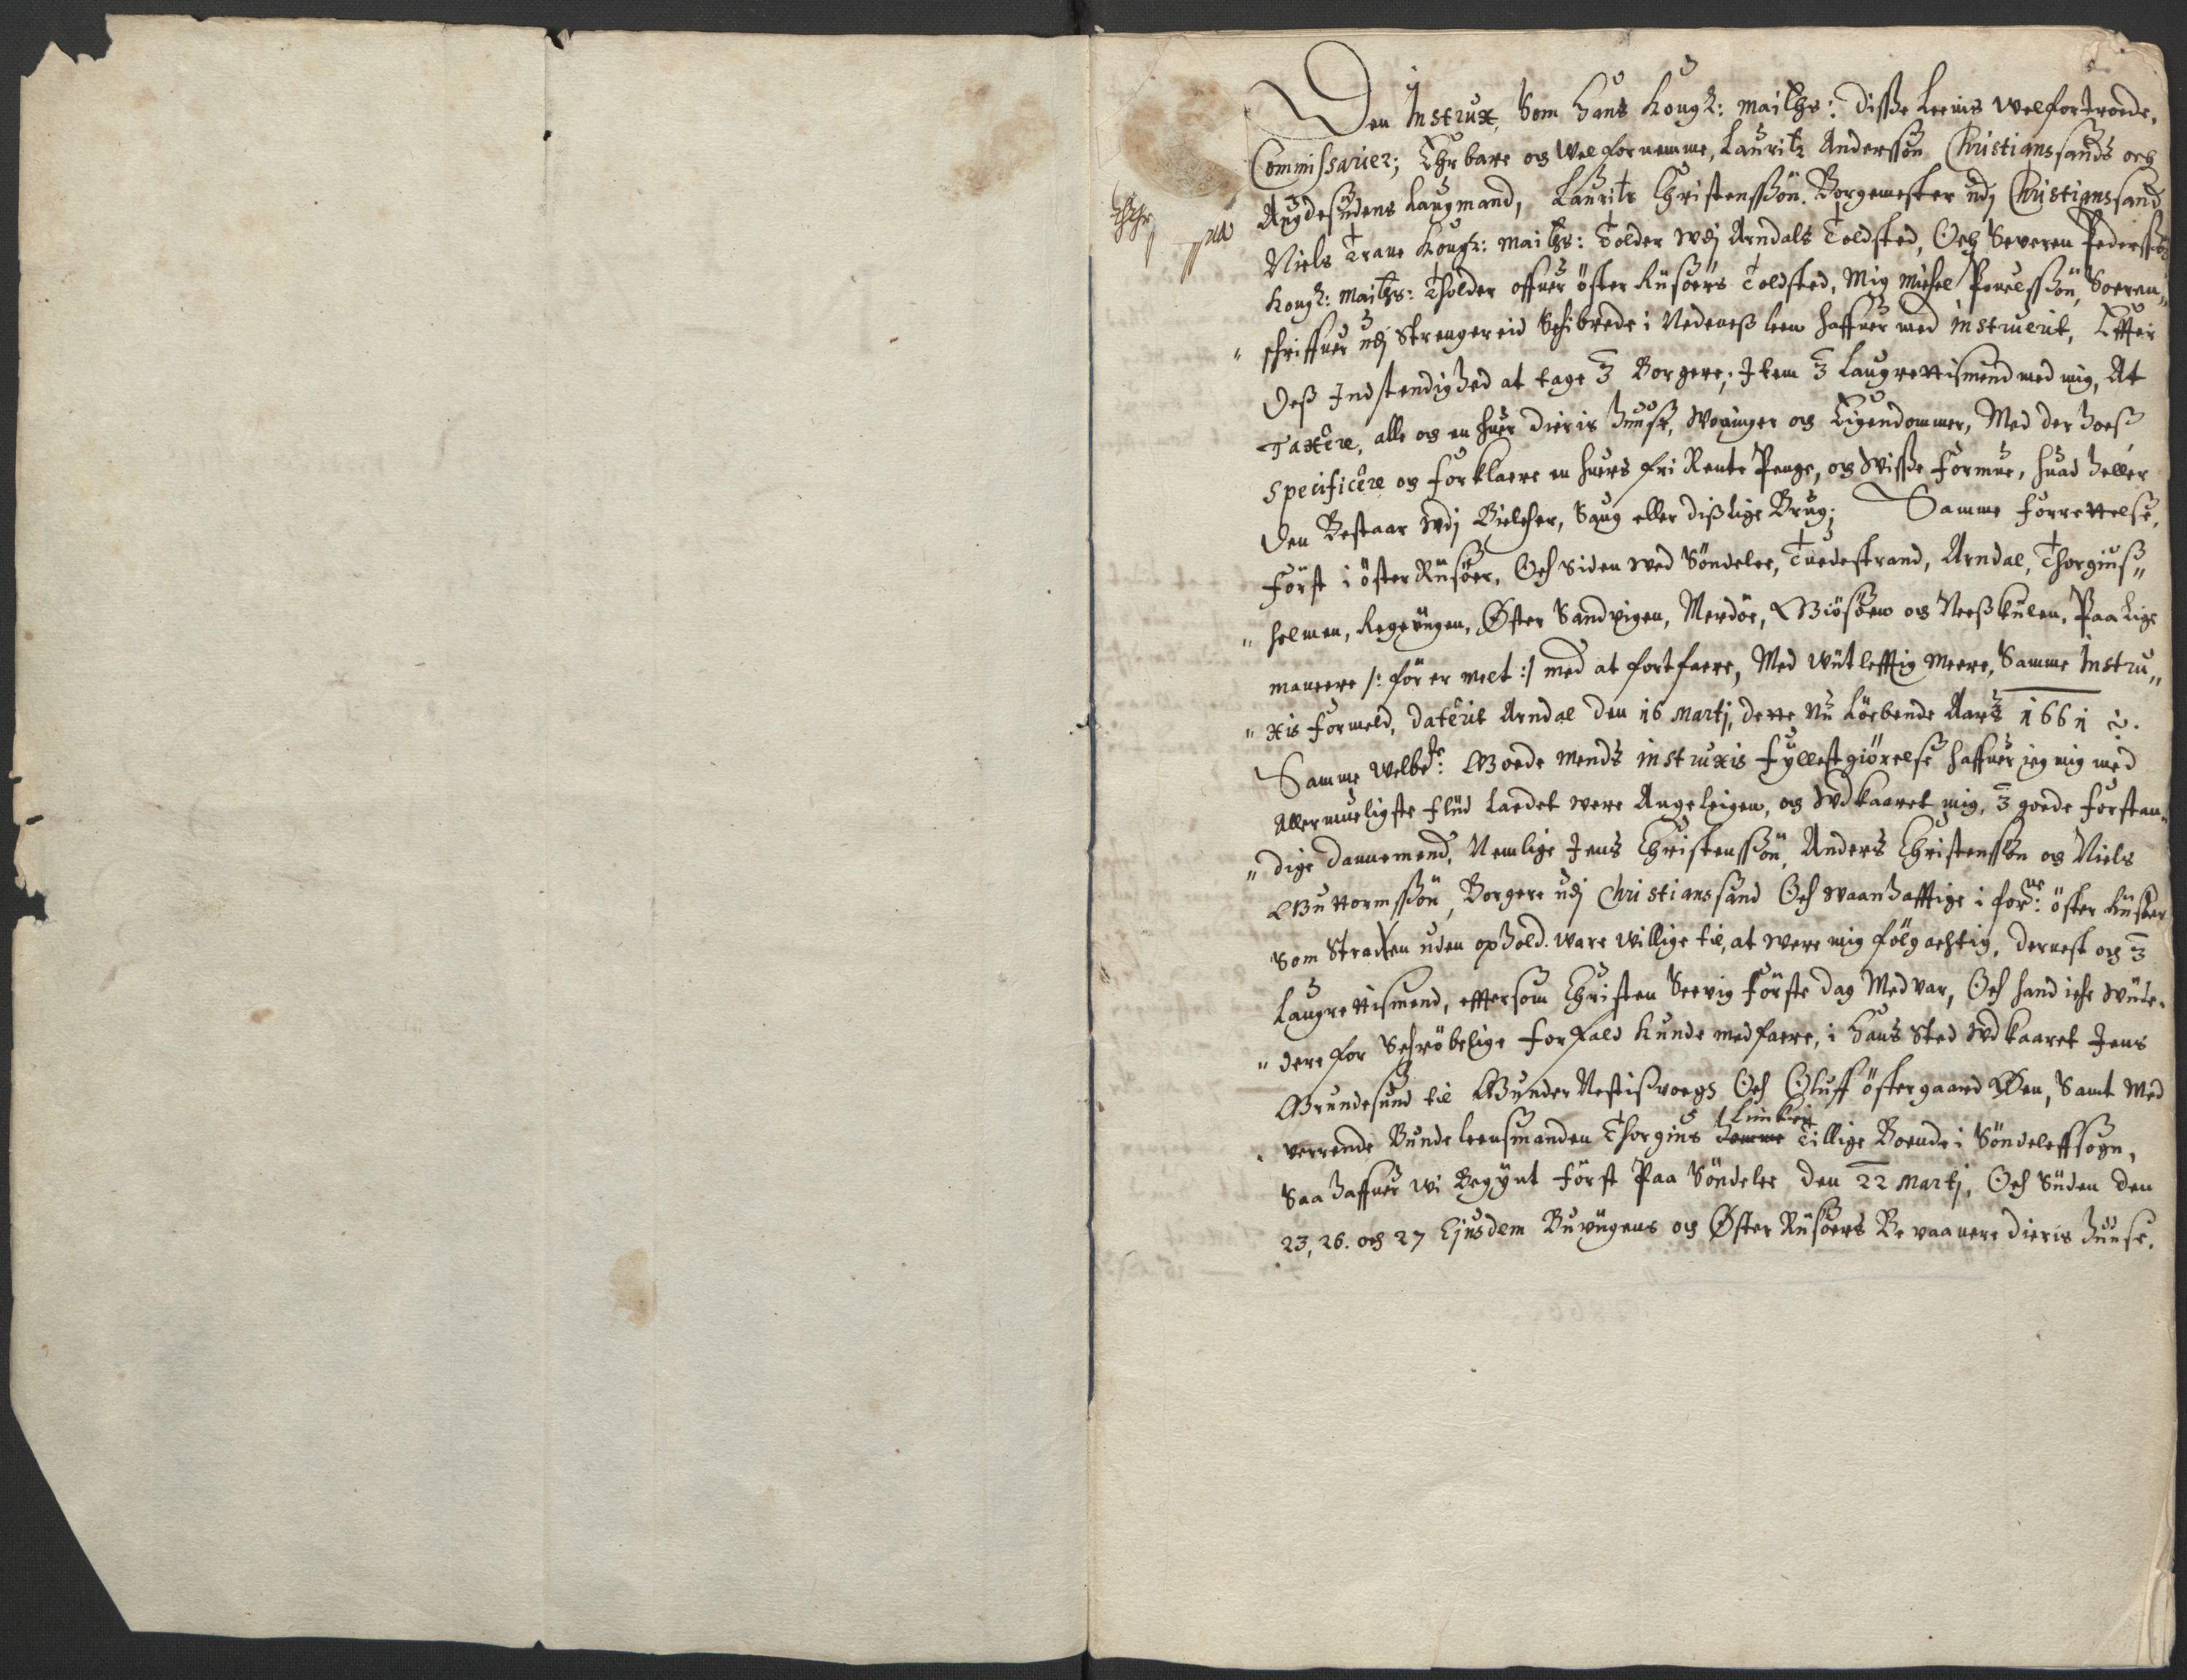 Den Instrux, Som Hans Kongl: Maitts: disse Leenis Welfortroede,
Commissarier; Ehrbare og Welfornemme, Lauritz Anderssön Christianssands och
Augdesidens Laugmand, Lauritz Christenssön Borgemester udj Christianssand
Niels Trane Kongl: Maitts: Tolder Wdj Arndals Toldsted, Och Seueren Pederssön
Kongl: Maitts: Tholder offuer öster Rüsöers Toldsted, Mig Michel Pouelssön, Soeren„
„ schriffuer udj Strengereid Schibrede i Nedeness leen haffuer med instruerit, Effter
Dess Indstendighed at tage 3 Borgere, Item 3 Laugrettismend med mig, At
Taxere, alle og en huer dieris Huuse, Woninger og Eigendommer, Med der hoess
Specificere og forklaere en huers fri Rente Penge, og Wisse formue, huad heller
den Bestaar Wdj Bielcher, Saug eller disslige Brug; Samme forrettelse,
Först i öster Rüsöer, Och siden Wed Söndelee, Tuedestrand, Arndal, Thorgius„
„ holmen, Regeuigen, Öster Sandvigen, Merdöe, Giösöen og Neesskilen, Paa Lige
maneere /: för er melt :/ med at fortfaere, Med Witlefftig meere, Samme Instru„
„ xis formeld, daterit Arndal den 16 Martj, dette Nu Löebende Aars 1661
Samme Welbete: Goede mends instruxis fyllestgiörelse haffuer ieg mig med
Allermueligste flid laedet vere Angeleigen, og Wdkaaret mig, 3 goede forstan„
„ dige dannemend, Nemlige Jens Christenssön, Anders Christenssön og Niels
Guttormssön, Borgere udj Christianssand Och Waanhafftige i forne: öster Rüsöer
Som Stracxen uden ophold ware Willige til, at were mig fölgachtig, dernest og 3
Laugrettismend, efftersom Christen Seevig förste dag Med var, Och hand iche Wide„
„ dere for Schröbelige forfald kunde medfaere, i Hans Sted Wdkaaret Jens
Grundesund til Gunder Nestissvoegs Och Oluff östergaard Öen, Samt Med
verende Bunde leensmanden Thorgius Limkier Tillige Boende i Söndeleffsogn,
Saa haffuer wi Begynt först Paa Söndelee den 22 Martj, Och Siden den
23, 26. og 27 Ejusdem Buvigens og Öster Rüsöers Be vaanere dieris Huuse.